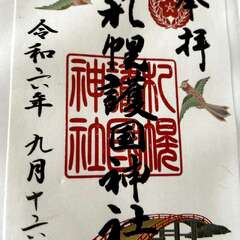 奉拝
札幌護国神社
令和六年九月十六
札幌
神社